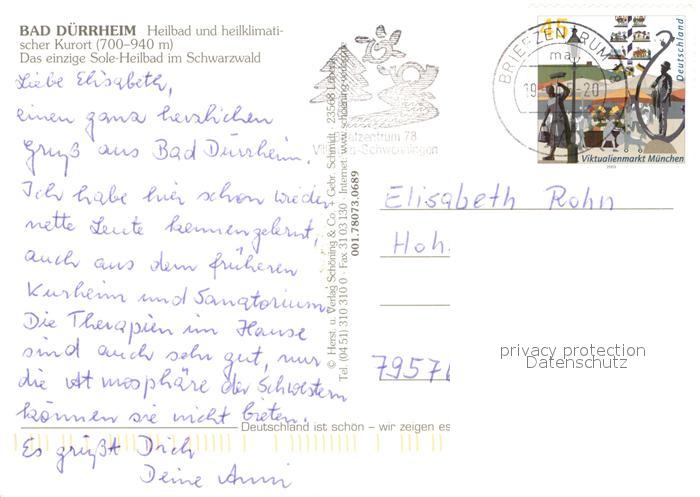 BAD DÜRRHEIM Heilbad und heilklimati-
scher Kurort (700–940 m)
Das einzige Sole-Heilbad im Schwarzwald
Liebe Elisabeth,
einen ganz herzlichen
Gruß aus Bad Dürrheim.
Ich habe hier schon wieder
nette Leute kennengelernt,
auch aus dem früheren
Kurheim und Sanatorium.
Die Therapien im Hause
sind auch sehr gut, nur
die Atmosphäre der Schwestern
können sie nicht bieten.
Es grüßt Dich
Deine Anni
© Herst. u. Verlag Schöning & Co. + Gebr. Schmidt 23568 Lübeck
Tel. (04 51) 310 310 0 · Fax 31 03 130 · Internet: www.schoening-verlag.de
001.78073.0689
Deutschland ist schön – wir zeigen es
Briefzentrum 78
Villingen-Schwenningen
BRIEFZENTRUM
45
Deutschland
Viktualienmarkt München
2003
Elisabeth Rohn
Hoh.
7957
privacy protection
Datenschutz